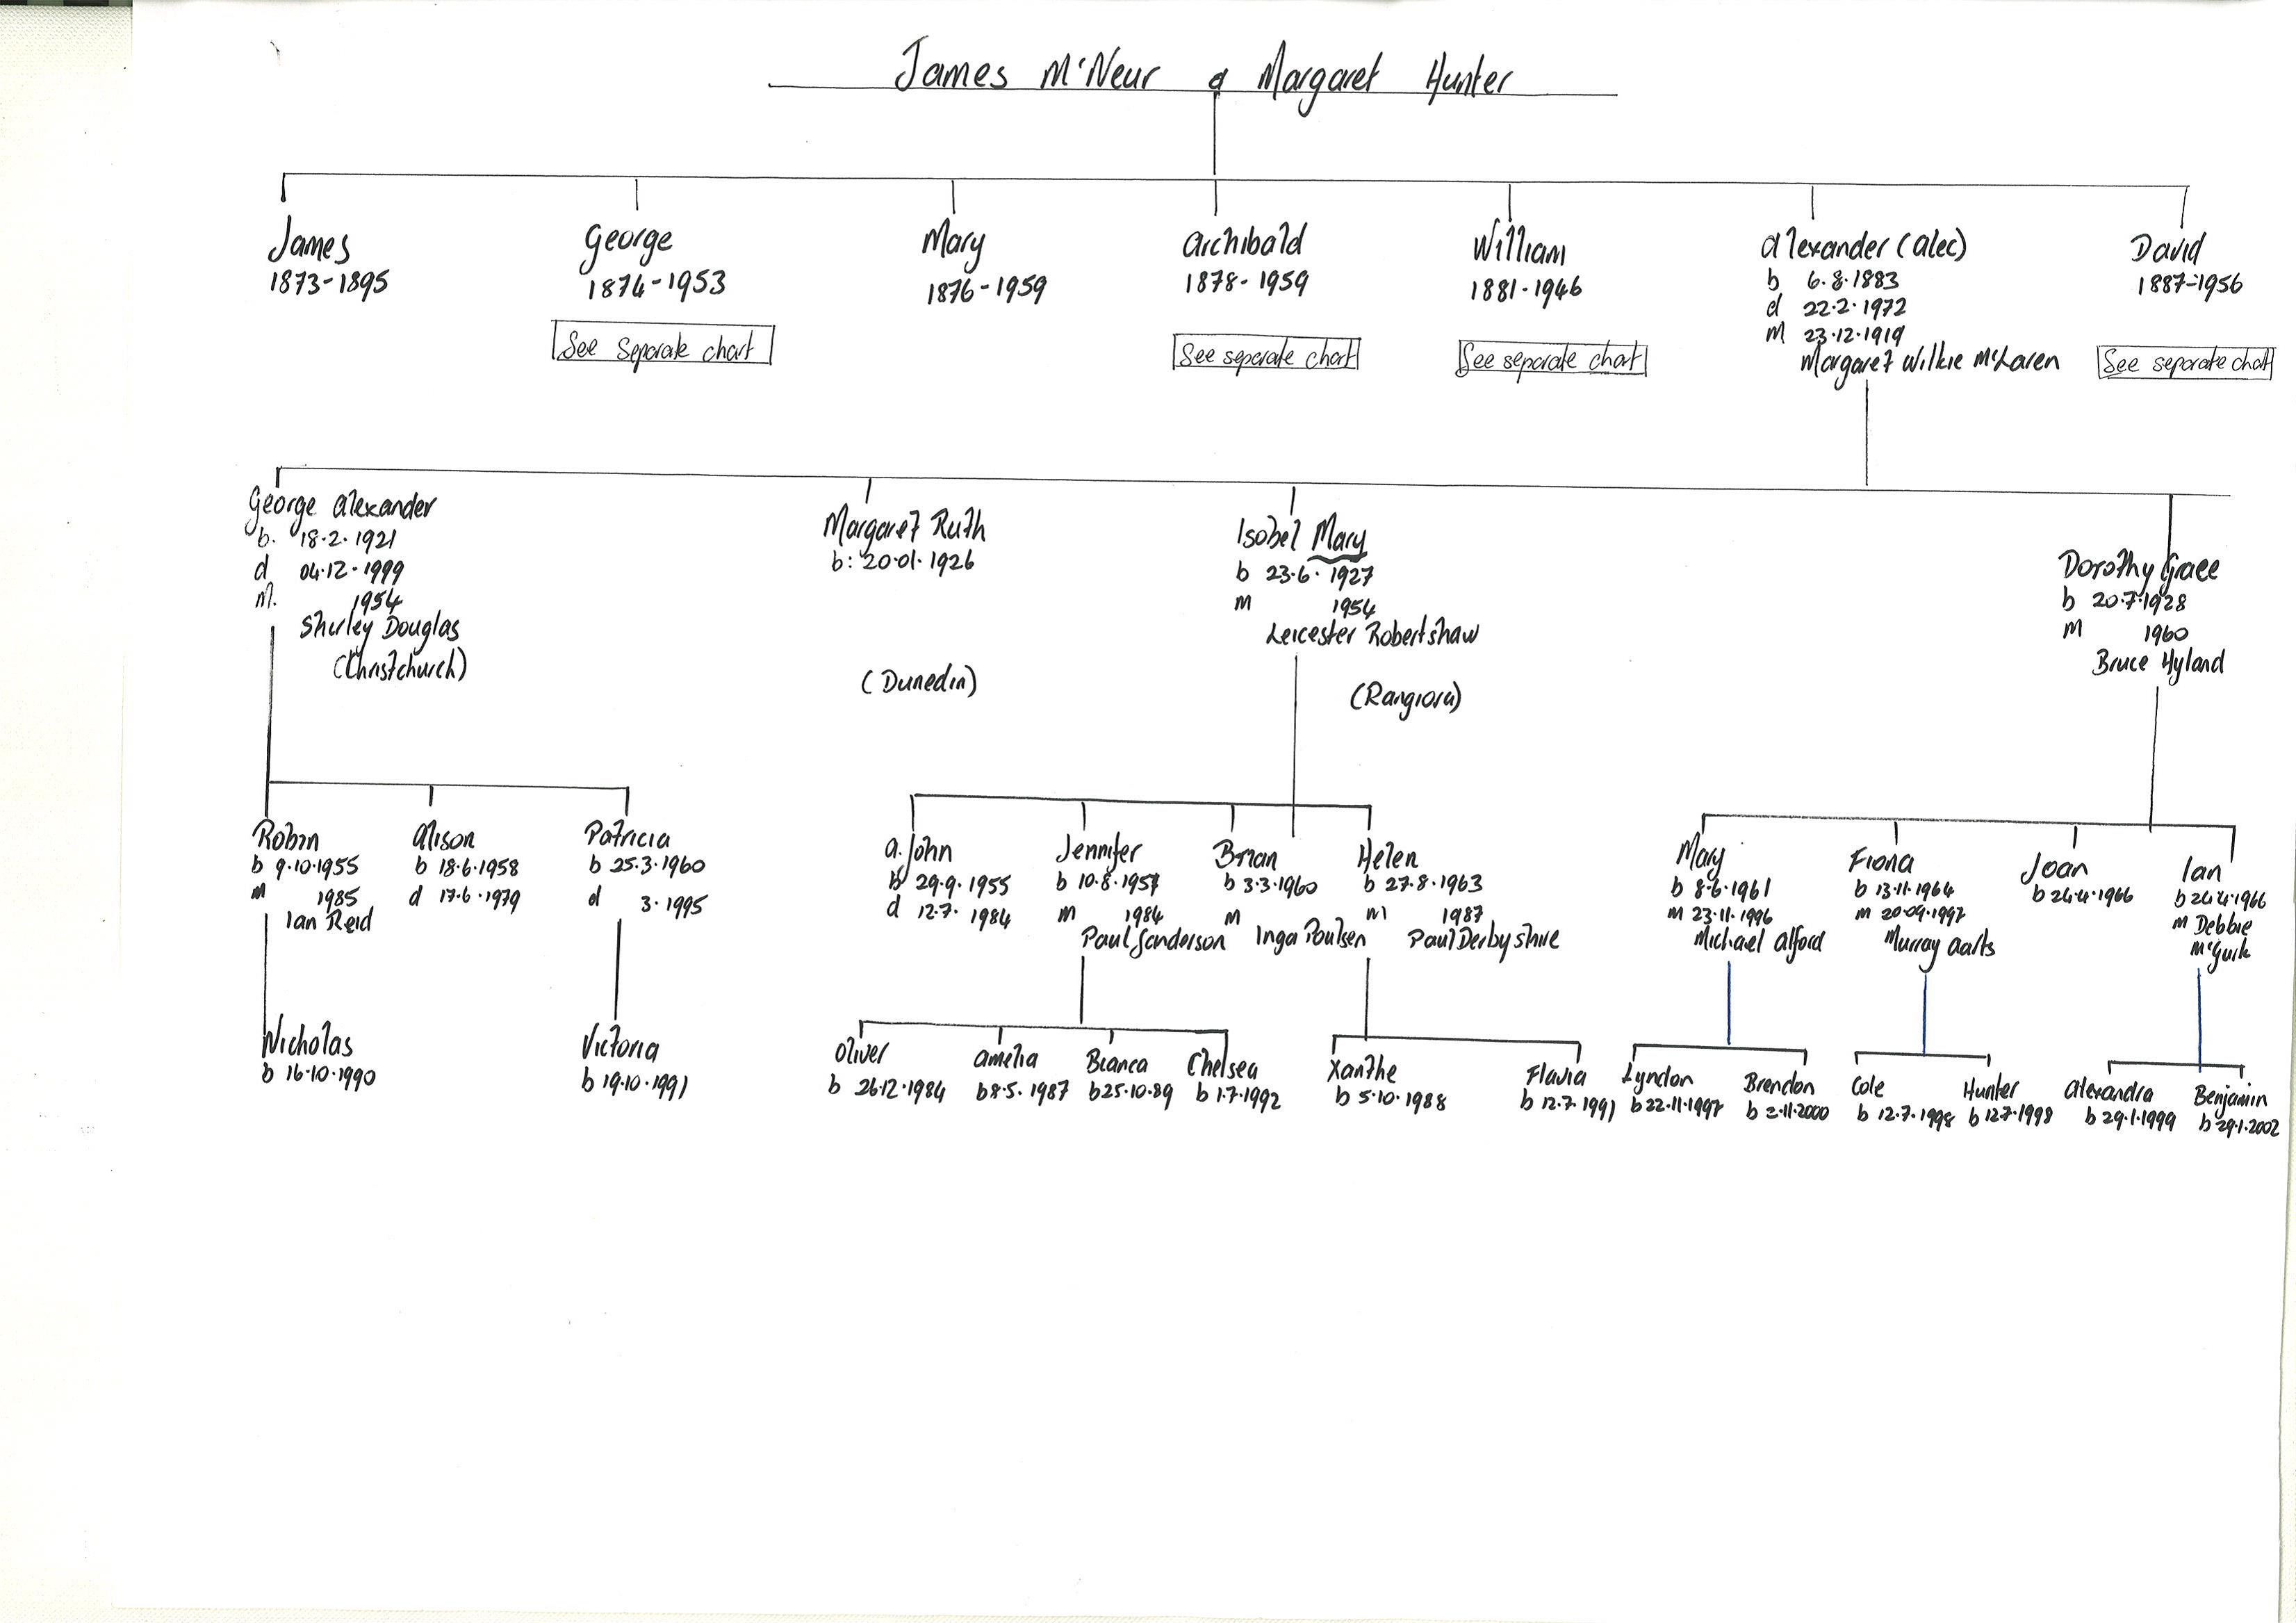 James McNeur & Margaret Hunter
James
1873-1895
George
1874-1953
See separate chart
Mary
1876-1959
Archibald
1878-1959
See separate chart
William
1881-1946
See separate chart
Alexander (Alec)
b 6.8.1883
d 22.2.1972
m 23.12.1919
Margaret Wilkie McLaren
David
1887-1956
See separate chart
George Alexander
b. 18.2.1921
d 04.12.1999
m. 1954
Shirley Douglas
(Christchurch)
Margaret Ruth
b: 20.01.1926
(Dunedin)
Isobel Mary
b 23.6.1927
m 1954
Leicester Robertshaw
(Rangiora)
Dorothy Grace
b 20.7.1928
m 1960
Bruce Hyland
Robin
b 9.10.1955
m 1985
Ian Reid
Alison
b 18.6.1958
d 17.6.1979
Patricia
b 25.3.1960
d 3.1995
A. John
b 29.9.1955
d 12.7.1984
Jennifer
b 10.8.1957
m 1984
Paul Sanderson
Brian
b 3.3.1960
m
Inga Poulsen
Helen
b 27.8.1963
m 1987
Paul Derbyshire
Mary
b 8.6.1961
m 23.11.1996
Michael Alford
Fiona
b 13.11.1964
m 20.09.1997
Murray Aarts
Joan
b 24.4.1966
Ian
b 24.4.1966
m Debbie
McGurk
Nicholas
b 16.10.1990
Victoria
b 19.10.1991
Oliver
b 26.12.1984
Amelia
b 8.5.1987
Bianca
b 25.10.89
Chelsea
b 1.7.1992
Xanthe
b 5.10.1988
Flavia
b 12.7.1991
Lyndon
b 22.11.1997
Brendon
b 2.11.2000
Cole
b 12.7.1998
Hunter
b 12.7.1998
Alexandra
b 29.1.1999
Benjamin
b 29.1.2002